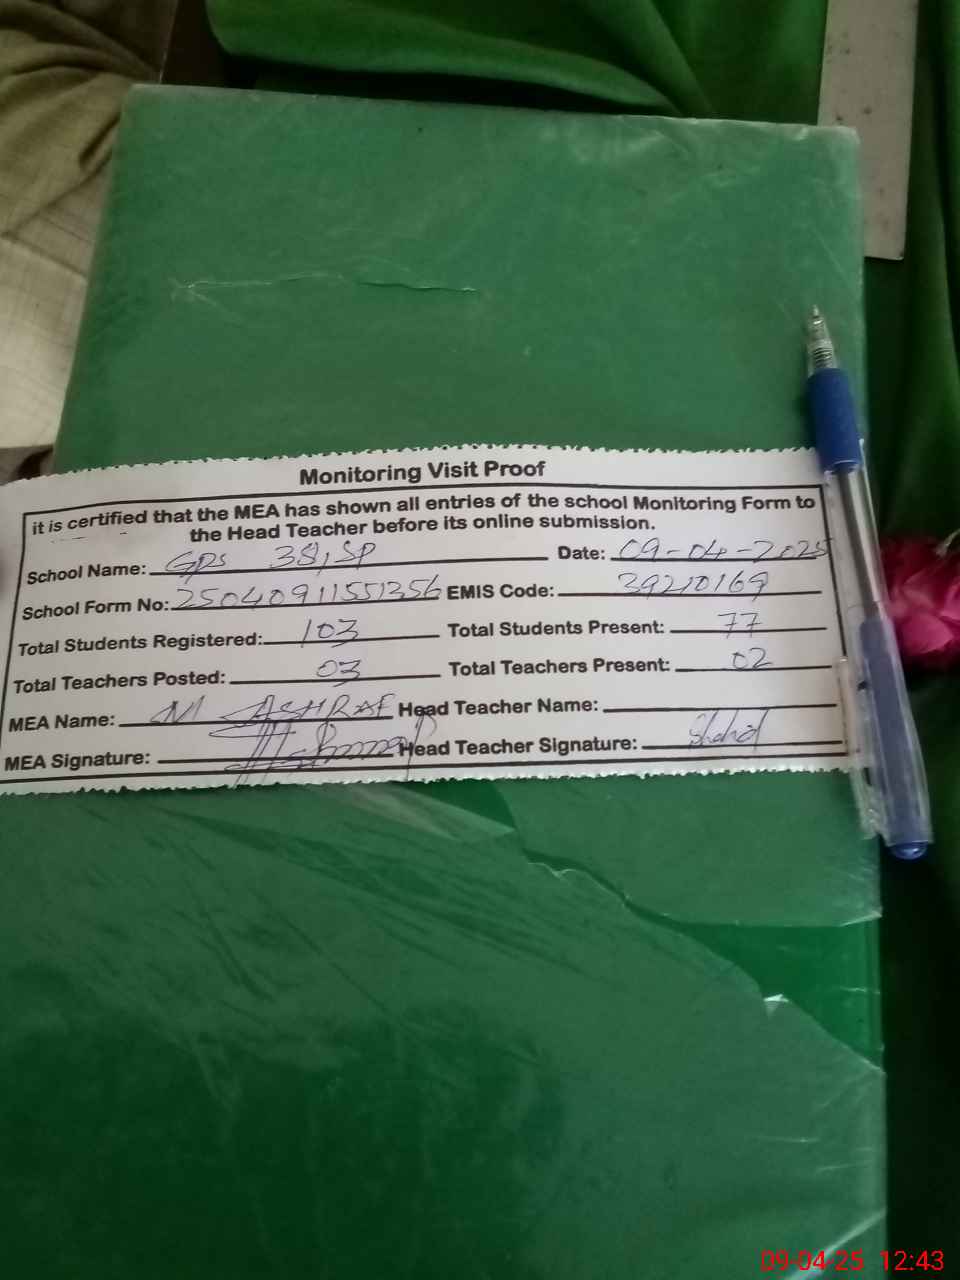 Monitoring Visit Proof
it is certified that the MEA has shown all entries of the school Monitoring Form to
the Head Teacher before its online submission.
School Name: GPS 38, SP Date: 09-04-2025
School Form No: 25040911551356 EMIS Code: 39210169
Total Students Registered: 103 Total Students Present: 77
Total Teachers Posted: 03 Total Teachers Present: 02
MEA Name: M ASHRAF Head Teacher Name:
MEA Signature: Head Teacher Signature: Shahid
09-04-25 12:43